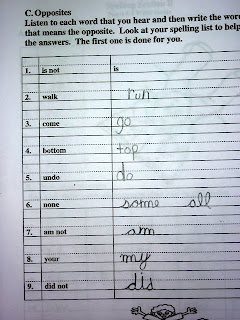 C. Opposites
Listen to each word that you hear and then write the word
that means the opposite. Look at your spelling list to help
the answers. The first one is done for you.
1. is not is
2. walk run
3. come go
4. bottom top
5. undo do
6. none some all
7. am not am
8. your my
9. did not did